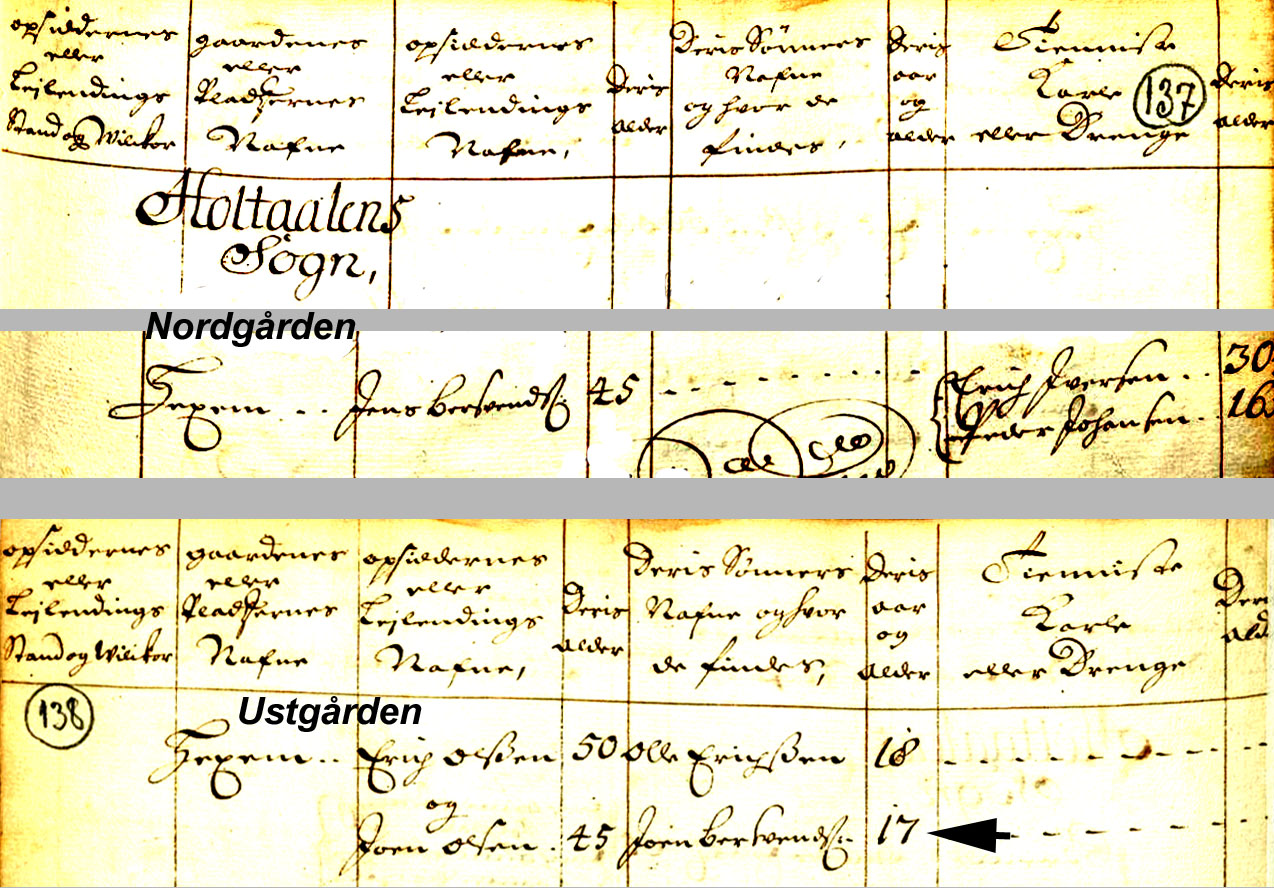 opsiddernes
eller
Lejlendings
Stand og Wilkor
gaardenes
eller
Pladzernes
Nafne
opsiddernes
eller
Lejlendings
Nafne,
Deris
alder
Deris Sønners
Nafne
og hvor de
findes,
Deris
aar
og
alder
Tienniste
Karle
eller Drenge
137
Deris
alder
Holtaalens
Sogn,
Nordgården
Jens Bersvends.
45
Erich Iversen
30
Peder Johansen
16
opsiddernes
eller
Lejlendings
Stand og Wilkor
gaardenes
eller
Pladzernes
Nafne
opsiddernes
eller
Lejlendings
Nafne,
Deris
alder
Deris Sønners
Nafne og hvor
de findes,
Deris
aar
og
alder
Tienniste
Karle
eller Drenge
138
Ustgården
Erich Olßen 50 Olle Erichßen 18
og
Joen Olsen 45 Joen Bersvends. 17